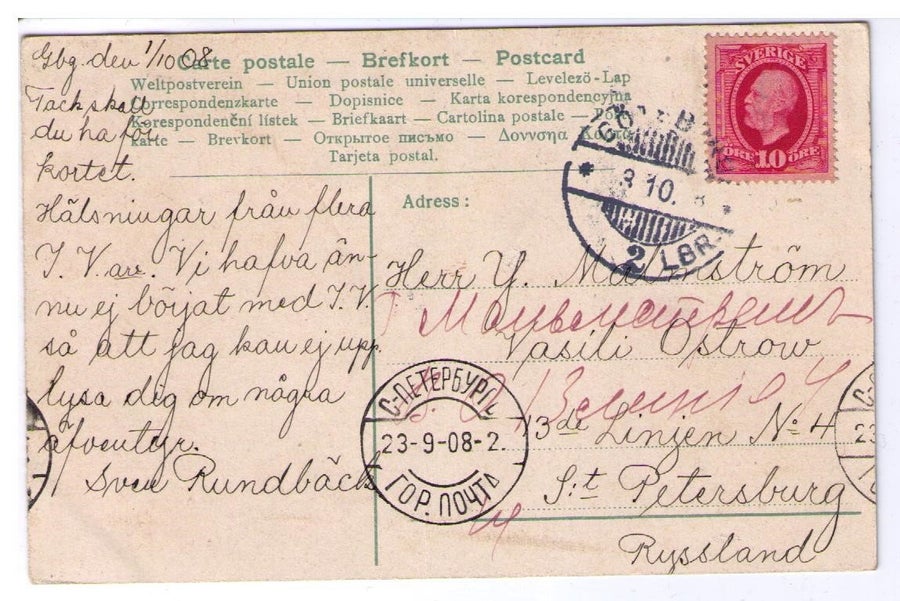 Gbg den 1/10 08
Tack skall
du ha för
kortet.
Hälsningar från flera
I. V. are. Vi hafva än-
nu ej börjat med I. V.
så att jag kan ej upp-
lysa dig om några
äfventyr.
Sven Rundbäck
Carte postale — Brefkort — Postcard
Weltpostverein — Union postale universelle — Levelező-Lap
Correspondenzkarte — Dopisnice — Karta korespondencyjna
Korespondenční lístek — Briefkaart — Cartolina postale —
karte — Brevkort — Открытое письмо —
Tarjeta postal.
SVERIGE
ÖRE 10 ÖRE
10.
2 LBR.
Adress:
Herr Y. Malmström
Мальмстремъ
Vasili Ostrow
13de Linjen No 4
S:t Petersburg
Ryssland
С-ПЕТЕРБУРГЪ
23-9-08-2.
ГОР. ПОЧТА
23